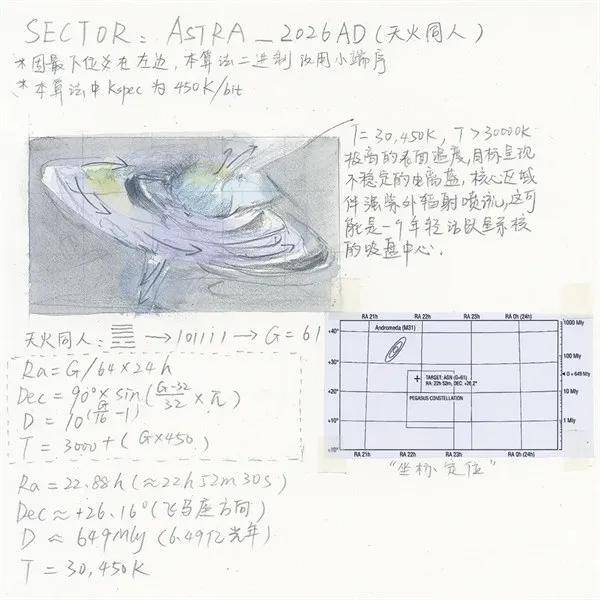 SECTOR: ASTRA_2026AD (天火同人)
*因最下位爻在左边,本算法二进制改用小端序
*本算法中 Kspec 为 450K/bit
T=30,450K, T>30000K
极高的表面温度,目标呈现
不稳定的电离蓝,核心区域
伴强紫外辐射喷流,这可
能是一个年轻活跃星系核
的吸盘中心.
天火同人: ䷌ → 101111 → G=61
Ra=G/64×24h
Dec=90°×sin(G-32/32×π)
D=10^(G/16-1)
T=3000+(G×450)
Ra=22.88h(≈22h52m30s)
Dec≈+26.16°(飞马座方向)
D≈649Mly(6.49亿光年)
T=30,450K
RA 21h RA 22h RA 23h RA 0h (24h)
Andromeda (M31)
+40°
+30°
+20°
+10°
+10°
1000 Mly
100 Mly
D = 649 Mly
10 Mly
1 Mly
TARGET: AGN (G=61)
RA: 22h 52m, DEC: +26.2°
PEGASUS CONSTELLATION
RA 21h RA 22h RA 23h RA 0h (24h)
"坐标定位"